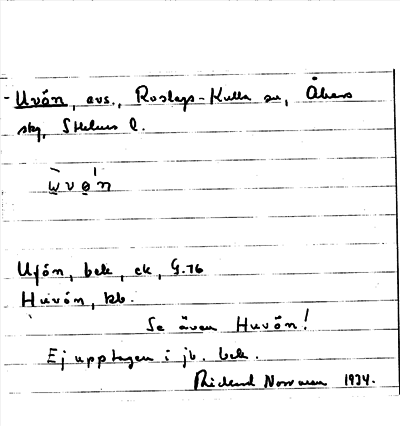 Uvön, avs., Roslags-Kulla sn, Åkers
skg, Sthlms l.
ẁvǫ'n
Ufön, bek, ek, G.76
Huvön, kb.
Se även Huvön!
Ej upptagen i jb. bek.
Rickard 1934.